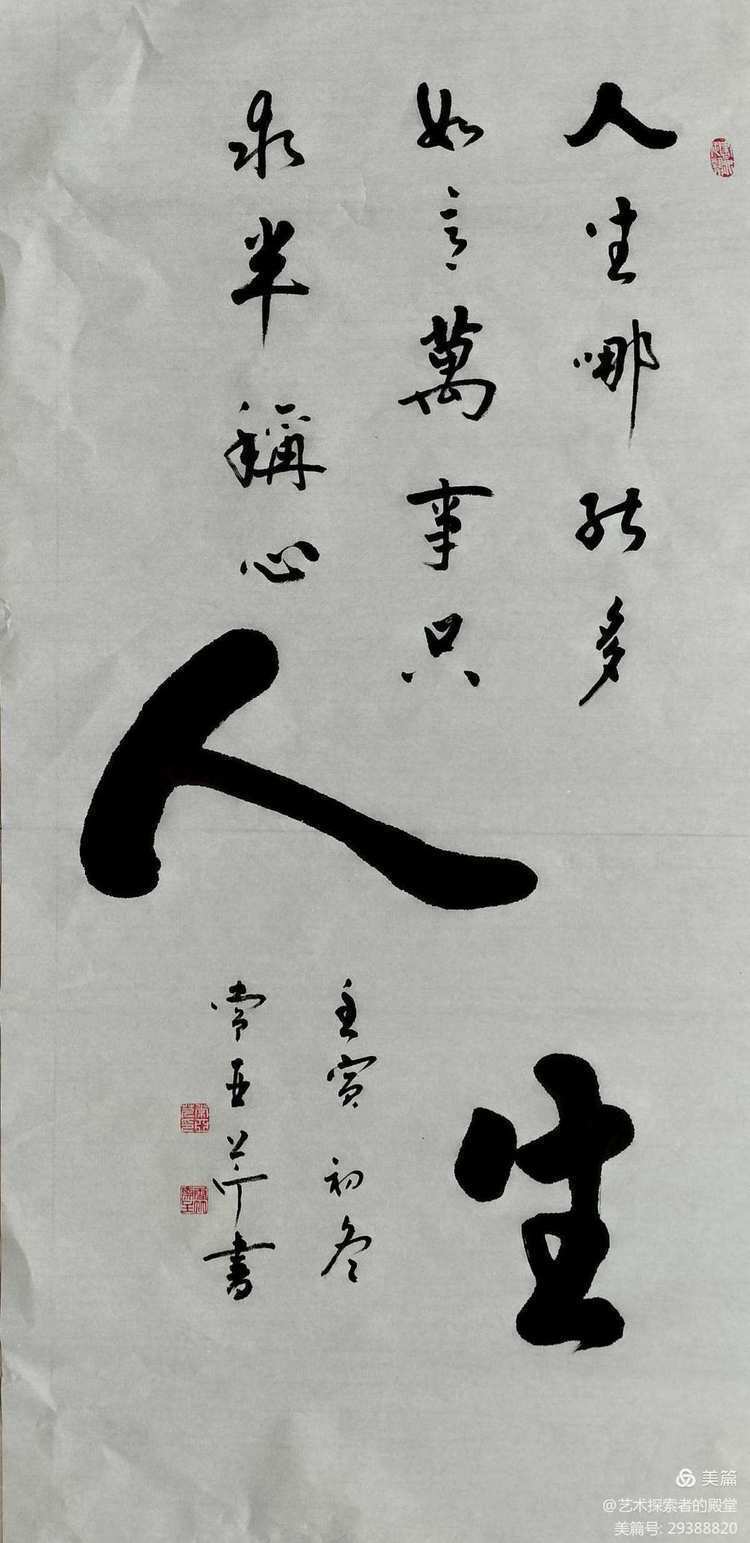 人生哪能多
如意萬事只
求半稱心
人生
壬寅初冬
常亚書
美篇
@艺术探索者的殿堂
美篇号: 29388820